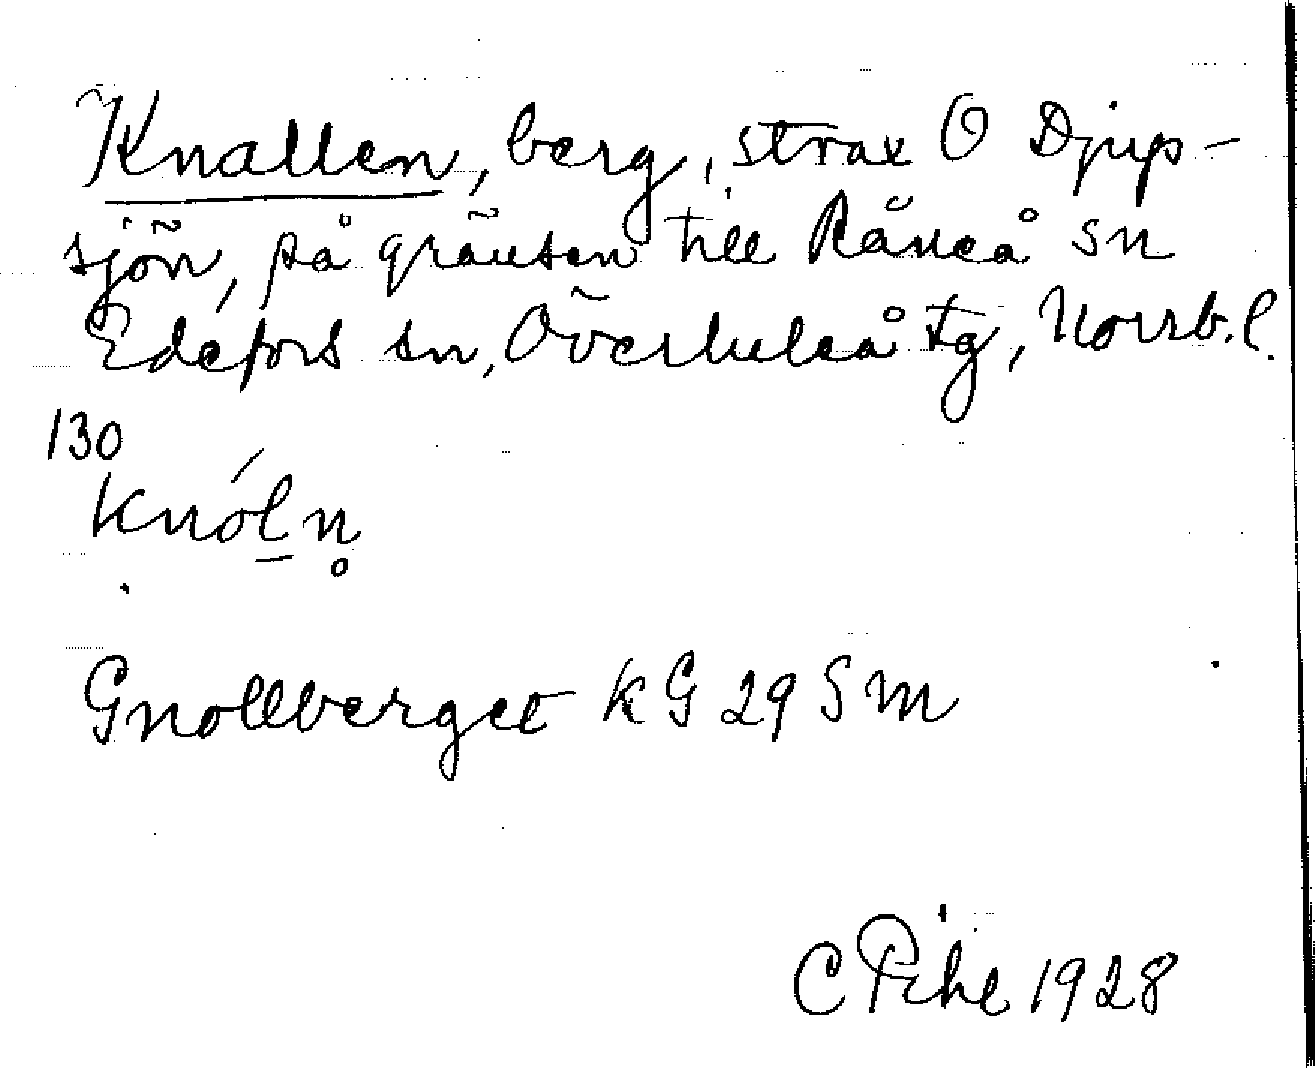 Knallen, berg, strax O Djup-
sjön, på gränsen till Råneå sn
Edefors sn, Överluleå tg, Norrb. l.
130
knól̲n̥
Gnollberget KG 29 S m
C Pihl 1928